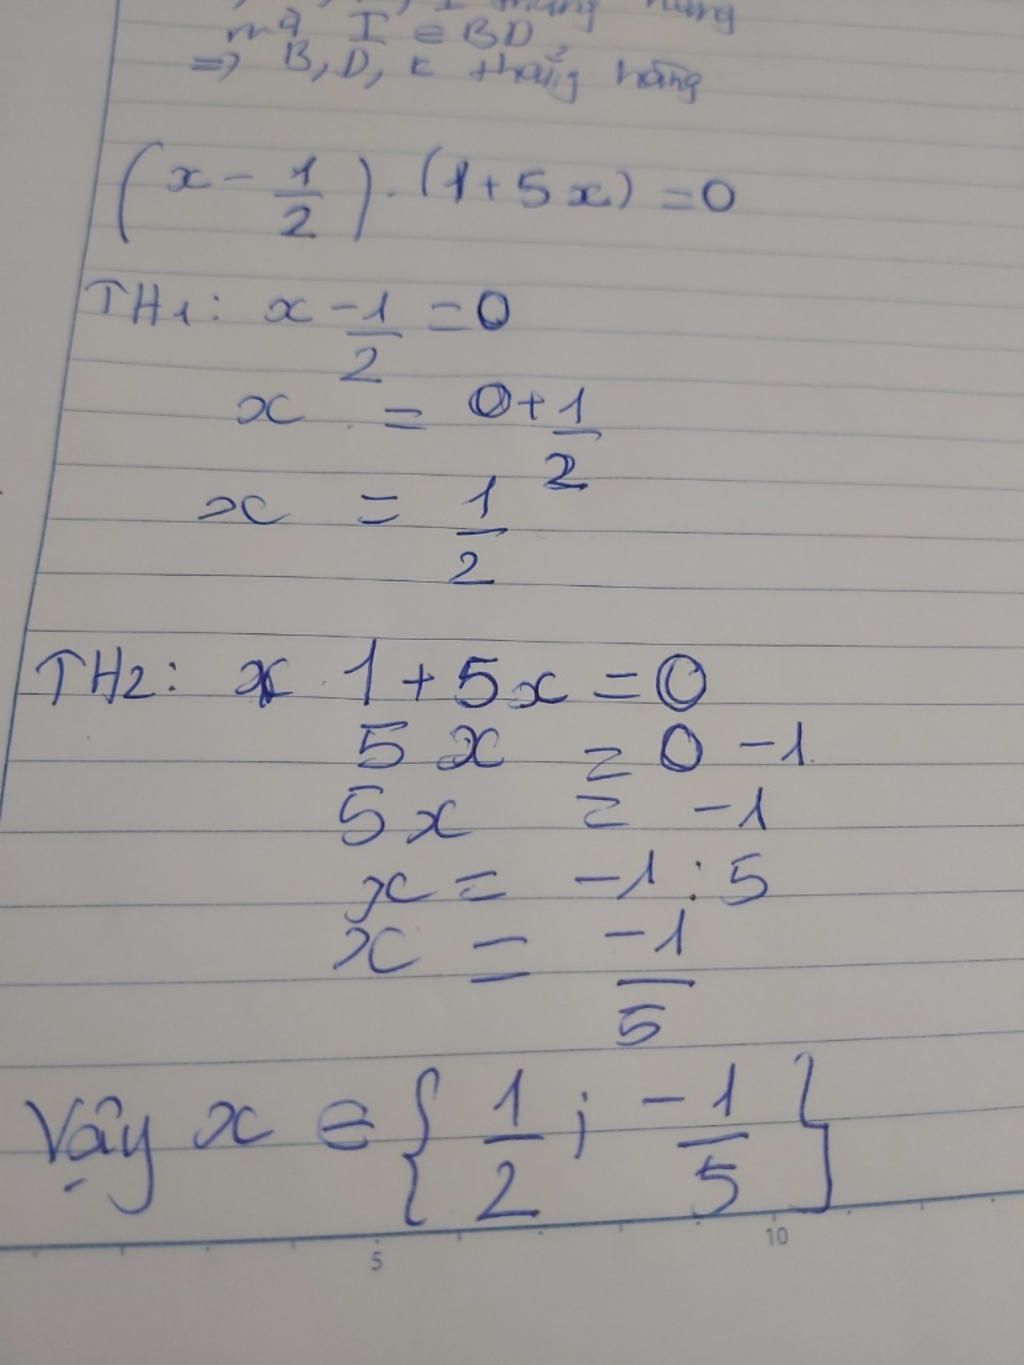 I thẳng hàng
mà I ∈ BD
=> B, D, K thẳng hàng
(x - 1/2) . (1 + 5x) = 0
TH1: x - 1/2 = 0
x = 0 + 1/2
x = 1/2
TH2: 1 + 5x = 0
5x = 0 - 1
5x = -1
x = -1 : 5
x = -1/5
Vậy x ∈ { 1/2 ; -1/5 }
5 10